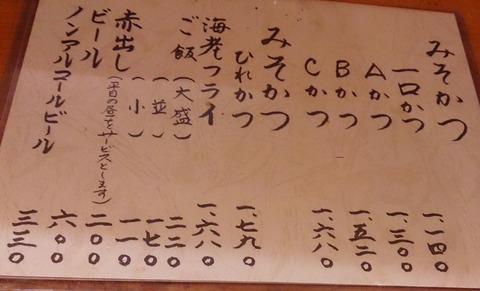 みそかつ
一口かつ 一、一四〇
Aかつ 一、三〇〇
Bかつ 一、五二〇
Cかつ 一、六八〇
みそかつ
ひれかつ 一、七九〇
海老フライ 一、六八〇
ご飯(大盛) 二二〇
(並) 一七〇
(小) 一一〇
赤出し 二〇〇
(平日の昼サービスとします)
ビール 六〇〇
ノンアルコールビール 三三〇